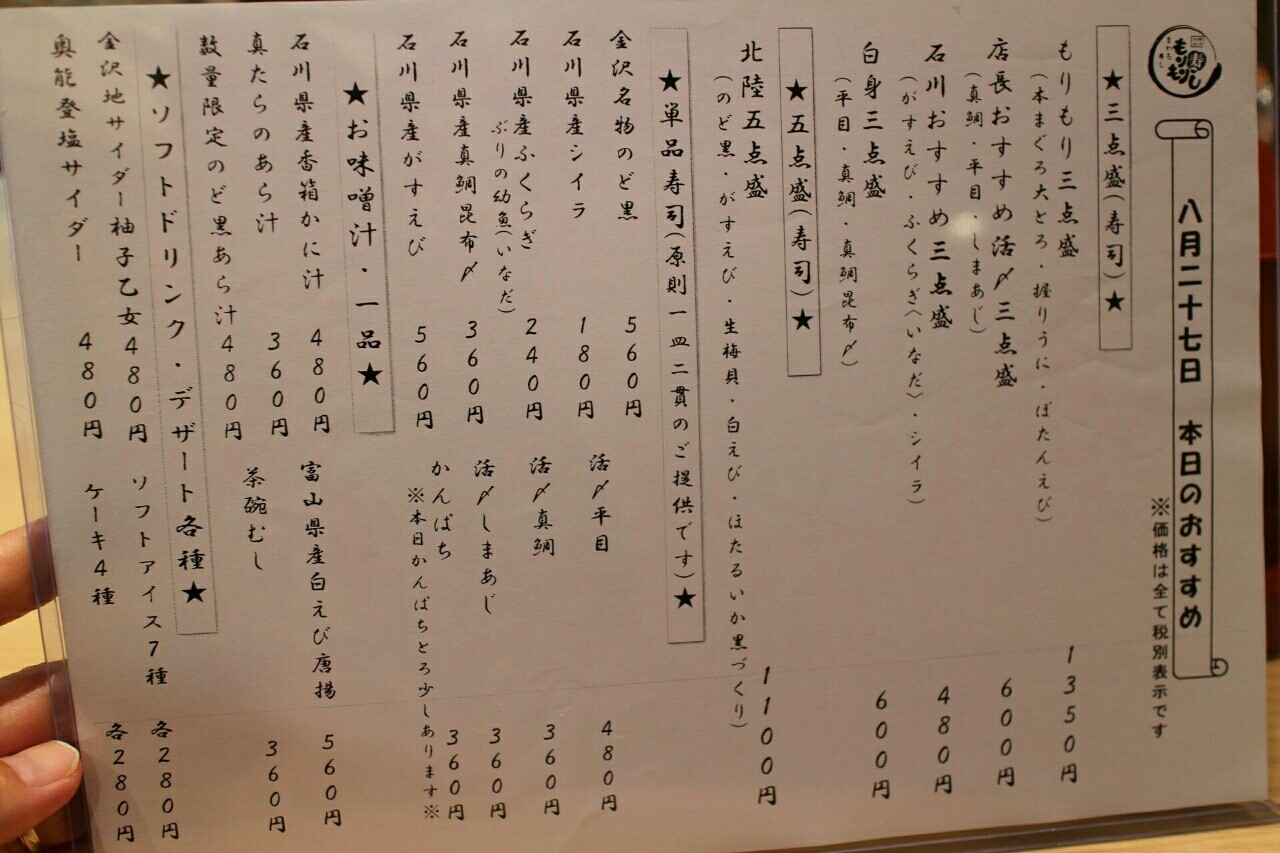 もりもり寿し
八月二十七日 本日のおすすめ
※価格は全て税別表示です
★三点盛(寿司)★
もりもり三点盛 1350円
(本まぐろ大とろ・握りうに・ぼたんえび)
店長おすすめ活〆三点盛 600円
(真鯛・平目・しまあじ)
石川おすすめ三点盛 480円
(がすえび・ふくらぎ〈いなだ〉・シイラ)
白身三点盛 600円
(平目・真鯛・真鯛昆布〆)
★五点盛(寿司)★
北陸五点盛 1100円
(のど黒・がすえび・生梅貝・白えび・ほたるいか黒づくり)
★単品寿司(原則一皿二貫のご提供です)★
金沢名物のど黒 560円
石川県産シイラ 180円
石川県産ふくらぎ 240円
ぶりの幼魚(いなだ)
石川県産真鯛昆布〆 360円
石川県産がすえび 560円
活〆平目 480円
活〆真鯛 360円
活〆しまあじ 360円
かんぱち 360円
※本日かんぱちとろ少しあります※
★お味噌汁・一品★
石川県産香箱かに汁 480円
真たらのあら汁 360円
数量限定のど黒あら汁 480円
富山県産白えび唐揚 560円
茶碗むし 360円
★ソフトドリンク・デザート各種★
金沢地サイダー柚子乙女 480円
奥能登塩サイダー 480円
ソフトアイス7種 各280円
ケーキ4種 各280円